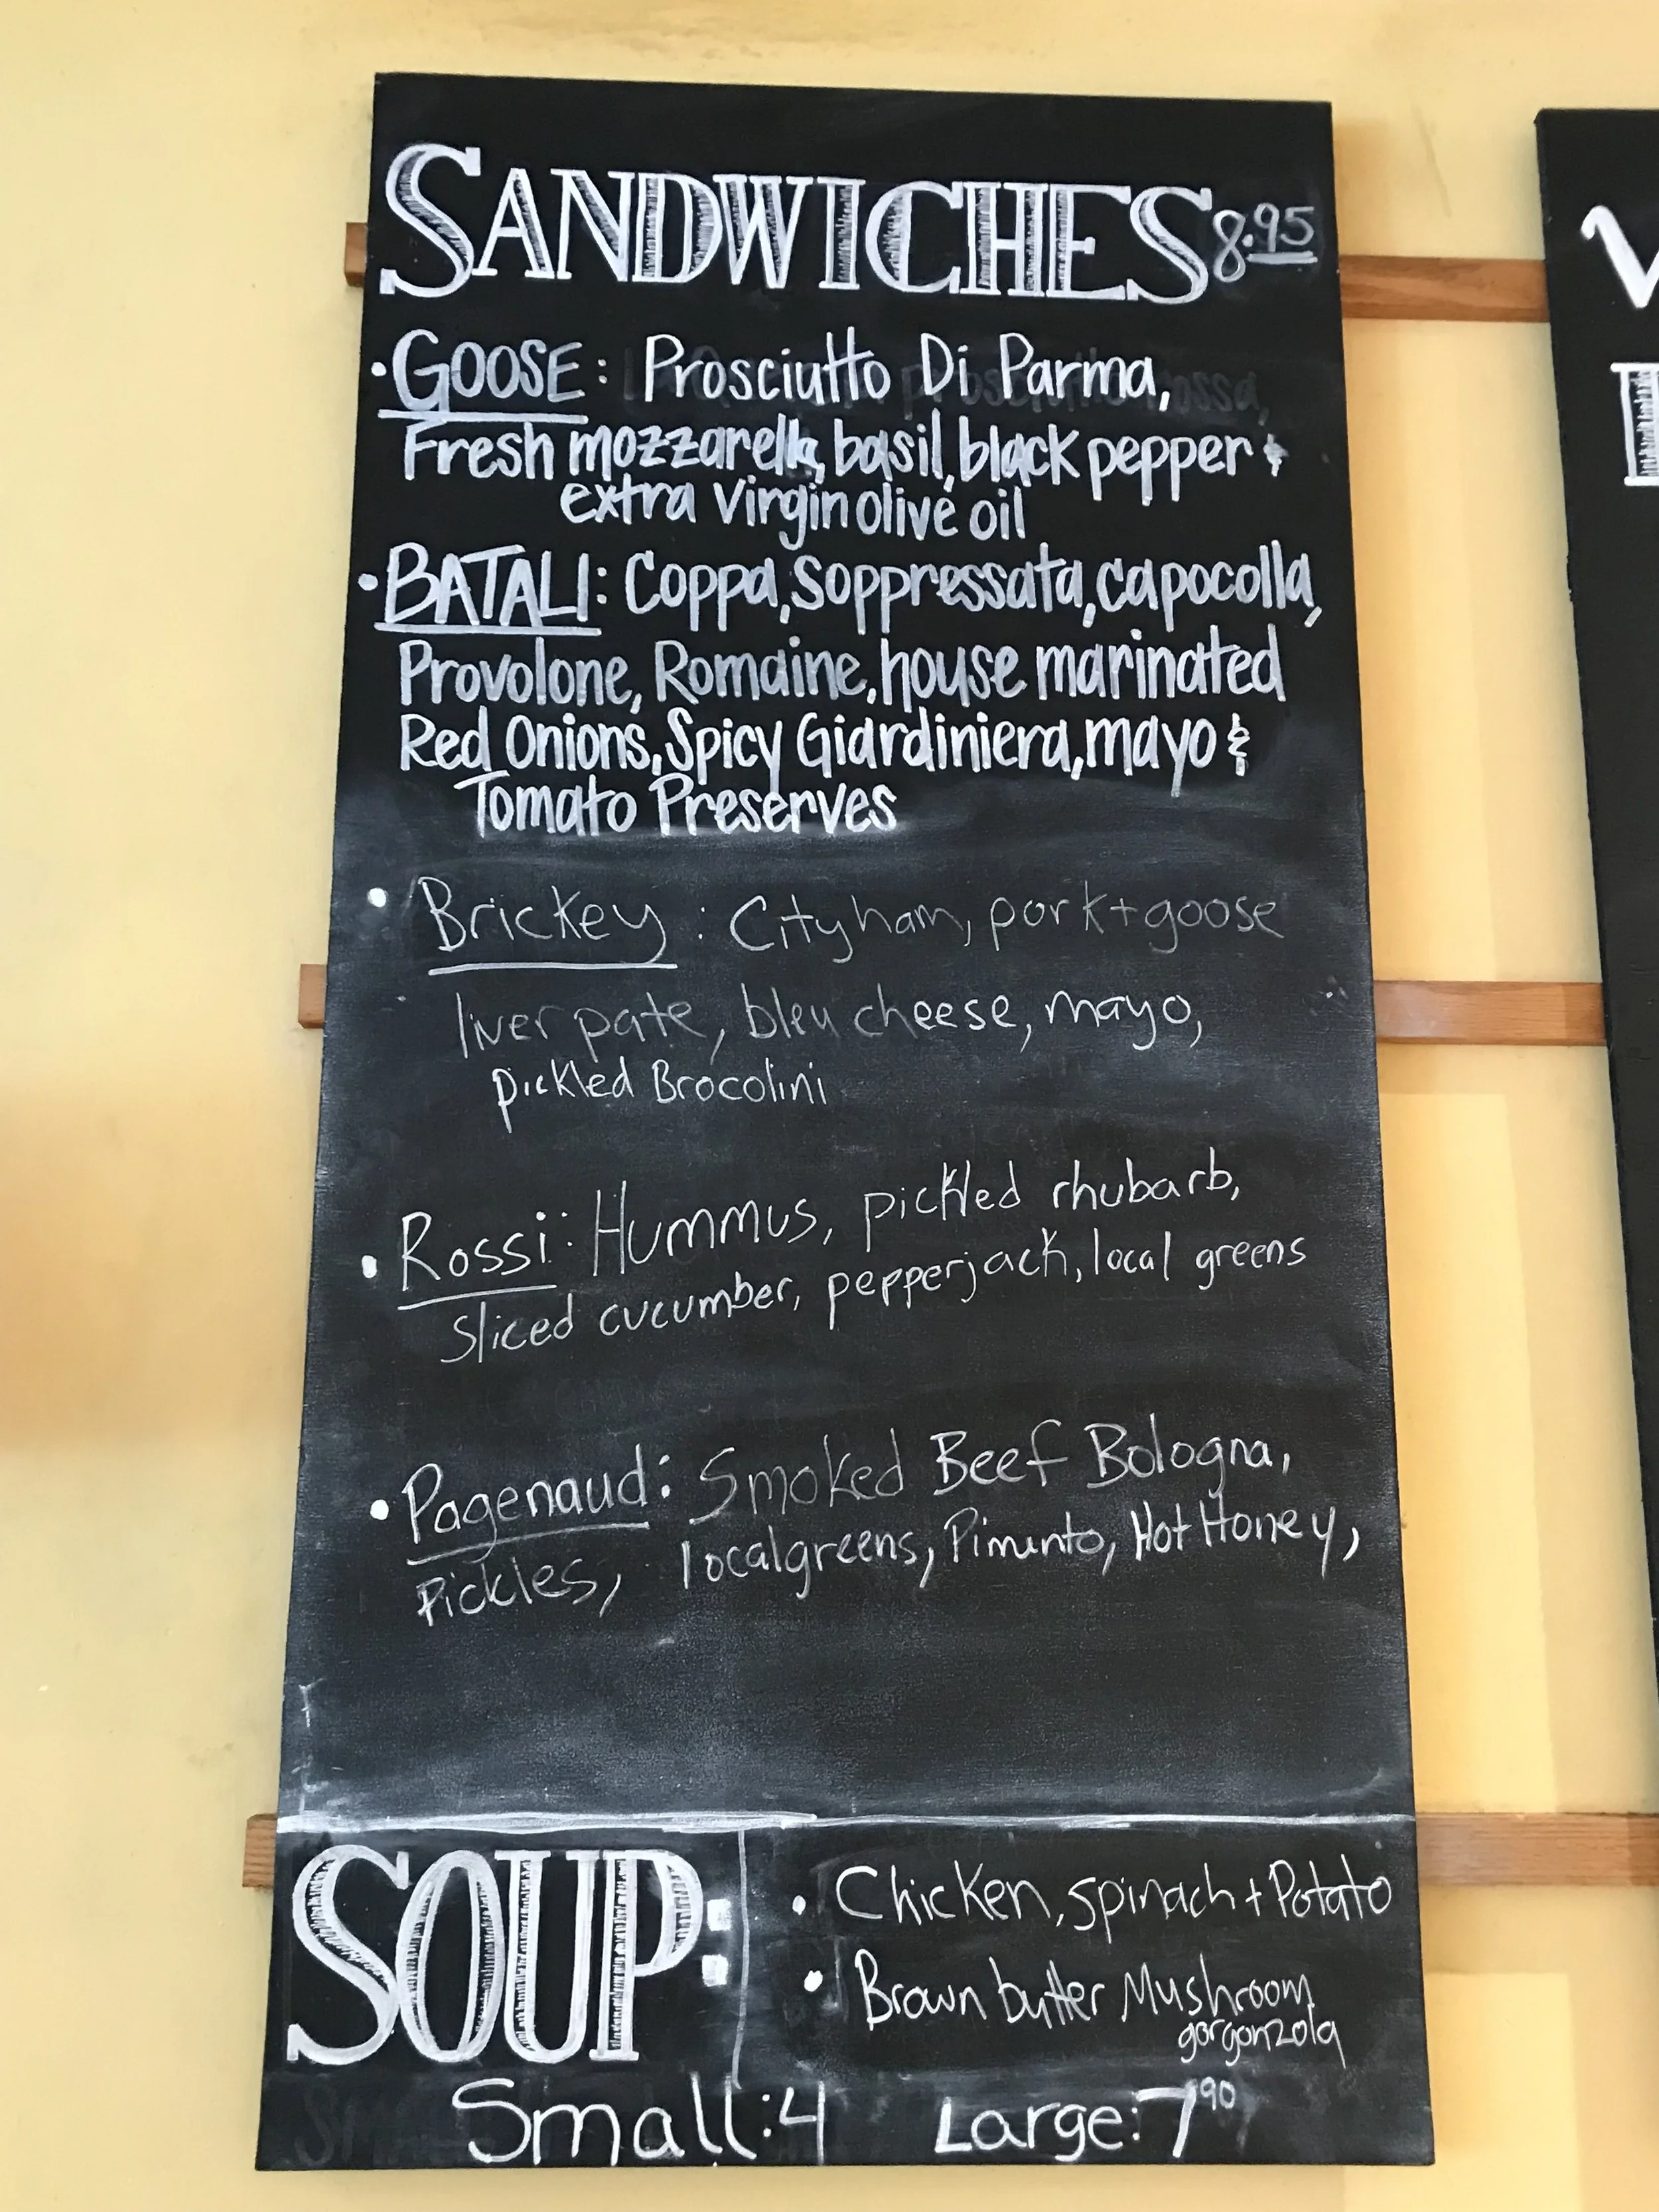 SANDWICHES 8.95
• GOOSE: Prosciutto Di Parma,
Fresh mozzarella, basil, black pepper &
extra Virgin olive oil
• BATALI: Coppa, Soppressata, Capocolla,
Provolone, Romaine, house marinated
Red Onions, Spicy Giardiniera, mayo &
Tomato Preserves
• Brickey: City ham, pork + goose
liver pate, bleu cheese, mayo,
pickled Brocolini
• Rossi: Hummus, pickled rhubarb,
Sliced cucumber, pepperjack, local greens
• Pagenaud: Smoked Beef Bologna,
Pickles, localgreens, Pimento, Hot Honey,
SOUP:
• Chicken, spinach + Potato
• Brown butter Mushroom
gorgonzola
Small: 4 Large: 7 90